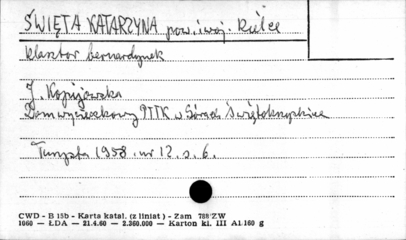 ŚWIĘTA KATARZYNA pow. i woj. Kielce
klasztor bernardynek
J. Kopijowska
Dom wycieczkowy PTTK w Górach Świętokrzyskich
Turysta 1958. nr 12. s. 6.
CWD - B 15b - Karta katal. (z liniat) - Zam 788/ZW
1060 — ŁDA — 21.4.60 — 2.360.000 — Karton kl. III A1 160 g